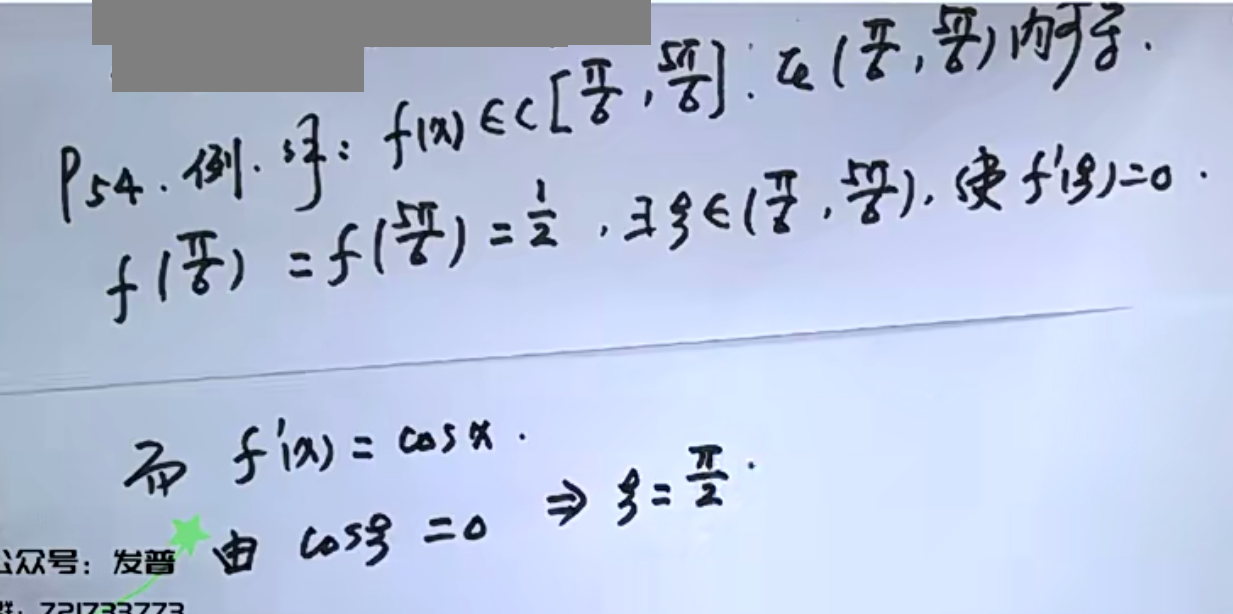 P54. 例. 证: f(x) ∈ C [π/6, 5π/6]. 在 (π/6, 5π/6) 内可导.
f(π/6) = f(5π/6) = 1/2, ∃ξ ∈ (π/6, 5π/6), 使 f'(ξ) = 0.
而 f'(x) = cos x.
由 cosξ = 0 ⇒ ξ = π/2.
公众号: 发普
群: 721733773